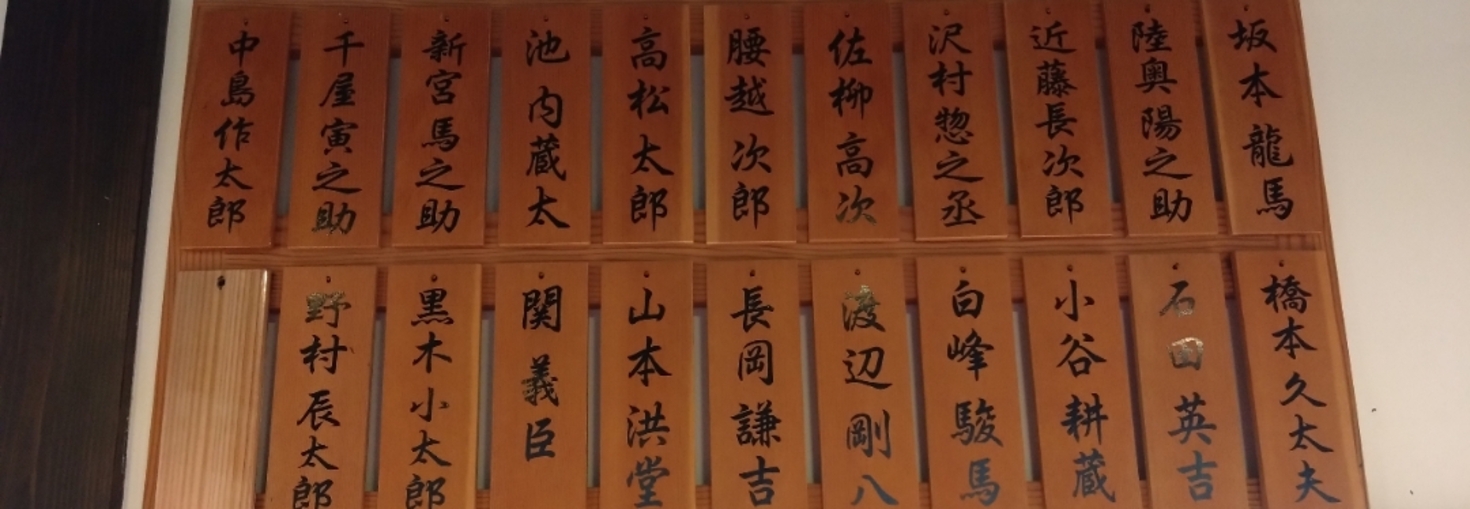 坂本龍馬
陸奥陽之助
近藤長次郎
沢村惣之丞
佐柳高次
腰越次郎
高松太郎
池内蔵太
新宮馬之助
千屋寅之助
中島作太郎
橋本久太夫
石田英吉
小谷耕蔵
白峰駿馬
渡辺剛八
長岡謙吉
山本洪堂
関義臣
黒木小太郎
野村辰太郎